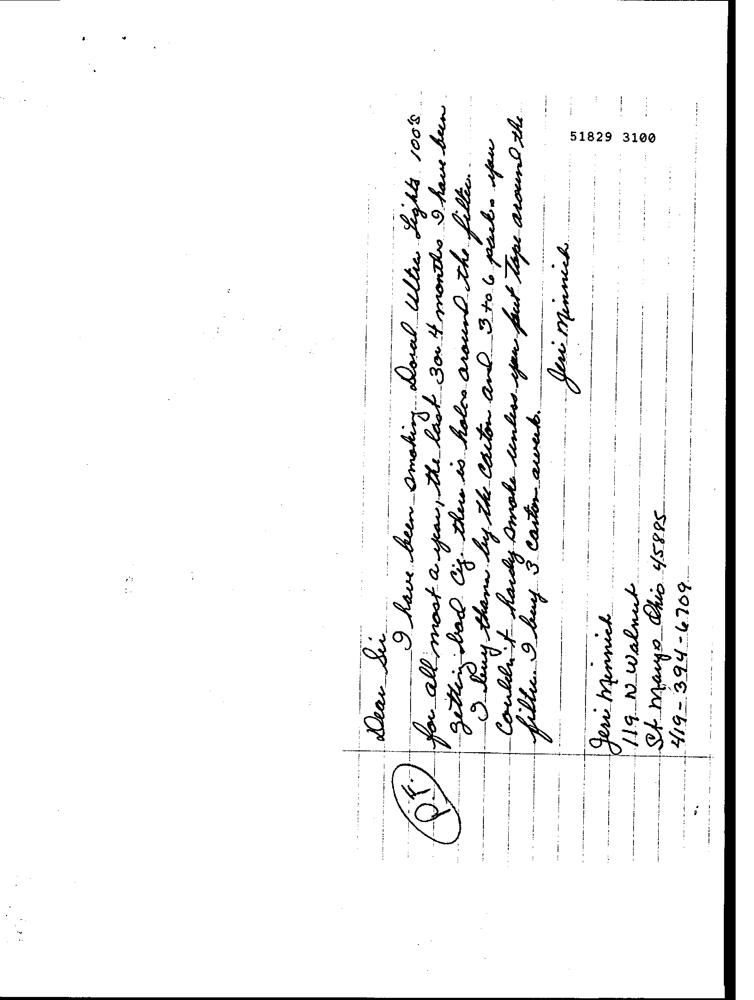 Dear Sir
I have been smoking Doral Ultra Lights 100's
for all most a year, the last 3 or 4 months I have been
getting bad Cig there is holes around the filter.
I buy tham by the Carton and 3 to 6 packs you
couldn't hardy smoke unless you put Tape around the
filter. I buy 3 carton aweek.
Jeri Minnich
Jeri Minnich
119 N Walnut
St Marys Ohio 45885
419-394-6709
51829 3100